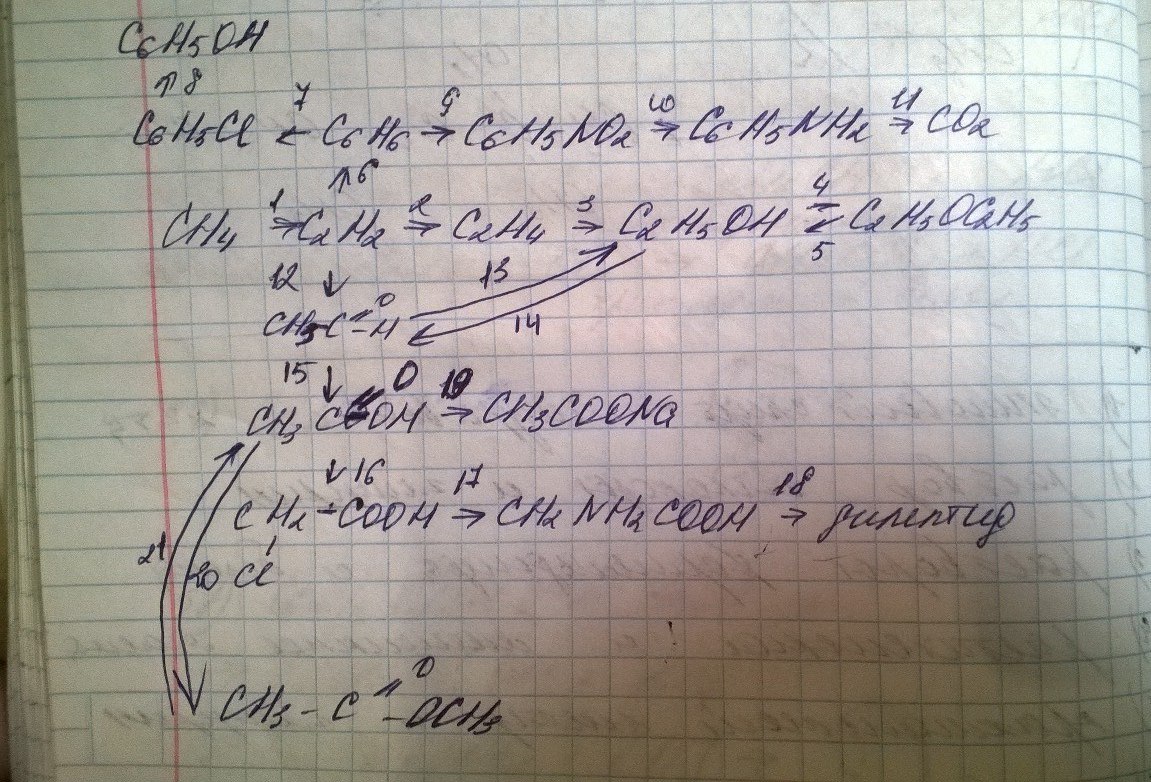 C6H5OH
↑8
C6H5Cl ←7 C6H6 →9 C6H5NO2 →10 C6H5NH2 →11 CO2
↑6
CH4 →1 C2H2 →2 C2H4 →3 C2H5OH ⇄4 5 C2H5OC2H5
12 ↓ 13
CH3-C=O-H 14
15 ↓
CH3COOH →19 CH3COONa
↓ 16
CH2-COOH →17 CH2NH2COOH →18 дипептид
21 20 Cl
CH3-C=O-OCH3